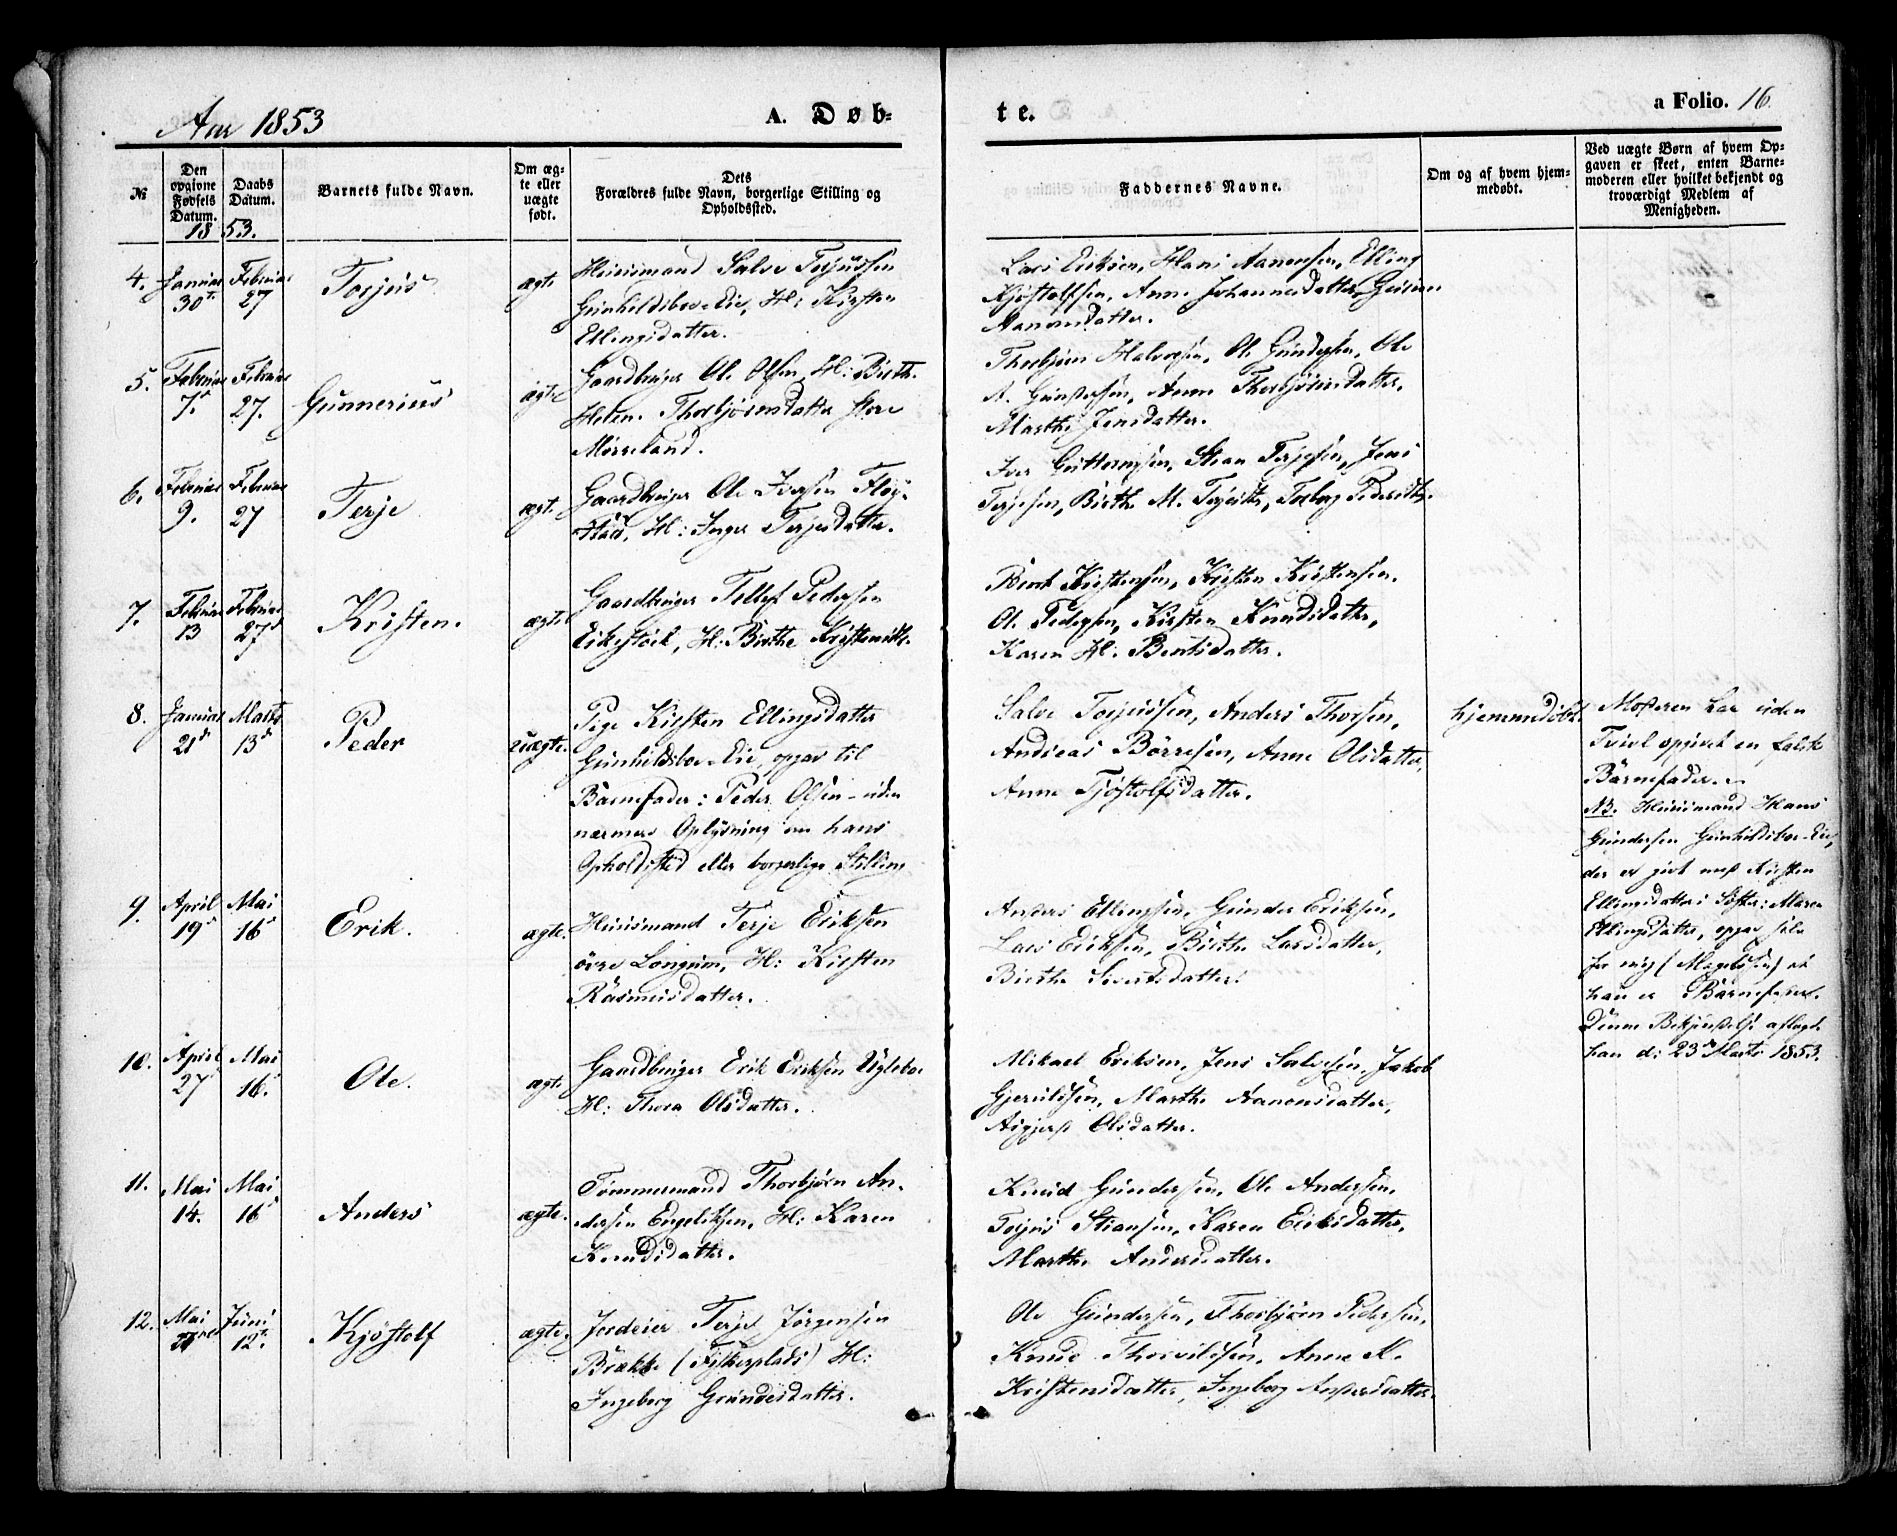 Aar 1853
A. Døb-
te.
a Folio. 16
№
Den opgivne Fødsels Datum.
Daabs Datum.
Barnets fulde Navn.
Om ægte eller uægte født.
Dets Forældres fulde Navn, borgerlige Stilling og Opholdssted.
Faddernes Navne.
Om og af hvem hjemmedøbt.
Ved uægte Børn af hvem Opgaven er skeet, enten Barnemoderen eller hvilket bekjendt og troværdigt Medlem af Menigheden.
18 53.
4. Januar 30te Februar 27 Torjus ægte
Huusmand Salve Torjussen
Gunhildsboe Eie, H: Kirsten
Ellingsdatter.
Lars Eriksen, Hans Aanensen, Elling
Kjøstolfsen, Anne Johannesdatter,
Aanonsdatter.
5. Februar 7d Februar 27. Gunnerius ægte
Gaardbruger Ole Olsen, H: Birthe
Helene Thorbjørnsdatter store
Mørreland.
Thorbjørn Halvorsen, Ole Gundersen, Ole
A. Gundersen, Anne Thorbjørnsdatter,
Marthe Jensdatter.
6. Februar 9. Februar 27 Terje ægte
Gaardbruger Ole Iversen Fløy-
stad, H: Inger Terjesdatter.
Iver Guttormsen, Stian Terjesen, Jens
Terjesen, Birthe M. Terjesdtr, Torborg Pedersdtr.
7. Februar 13 Februar 27d Kristen. ægte
Gaardbruger Tellef Pedersen
Eikestøck, H: Birthe Kristensdtr.
Bent Kristensen, Kristen Kristensen.
Ole Pedersen, Kirsten Knudsdatter,
Karen H: Bentsdatter.
8. Januar 21d Marts 13d Peder uægte.
Pige Kirsten Ellingsdatter
Gunhildsboe Eie, opgav til
Barnefader: Peder Olsen – uden
nærmere Oplysning om hans
Opholdssted eller borgerlige Stilling
Salve Torjussen, Anders Thorsen,
Andreas Børresen, Anne Olsdatter,
Anne Tjøstolfsdatter.
hjemmedøbt.
Moderen har uden
Tvivl opgivet en falsk
Barnefader.
NB. Huusmand Hans
Gundersen Gunhildsboe-Eie,
der er givt med Kirsten
Ellingsdatters Søster: Maren
Ellingsdatter, opgav selv
for mig (Magelssen) at
han er Barnefader.
Denne Bekjendelse aflagde
han d: 23de Marts 1853.
9. April 19d Mai 16d Erik. ægte.
Huusmand Terje Eriksen
øvre Longum, H: Kirsten
Rasmusdatter.
Anders Ellingsen, Gunder Eriksen,
Lars Eriksen, Birthe Larsdatter,
Birthe Sivertsdatter.
10. April 27d Mai 16d Ole. ægte
Gaardbruger Erik Eriksen Uglebo
H: Thora Olsdatter.
Mikael Eriksen, Jens Salvesen, Jakob
Gjeruldsen, Marthe Aanonsdatter,
Olsdatter.
11. Mai 14. Mai 16d Anders ægte.
Tømmermand Thorbjørn An-
dersen Engeliksen, H: Karen
Knudsdatter.
Knud Gundersen, Ole Andersen,
Torjus Stiansen, Karen Eriksdatter,
Marthe Andersdatter.
12. Mai Juni 12te Kjøstolf ægte
Jordeier Terje Jørgensen
Brække (Fiskerplads) H:
Ingeborg Gundersdatter.
Ole Gundersen, Thorbjørn Pedersen,
Knud Thorvildsen, Anne K.
Kristensdatter, Ingeborg Andersdatter.